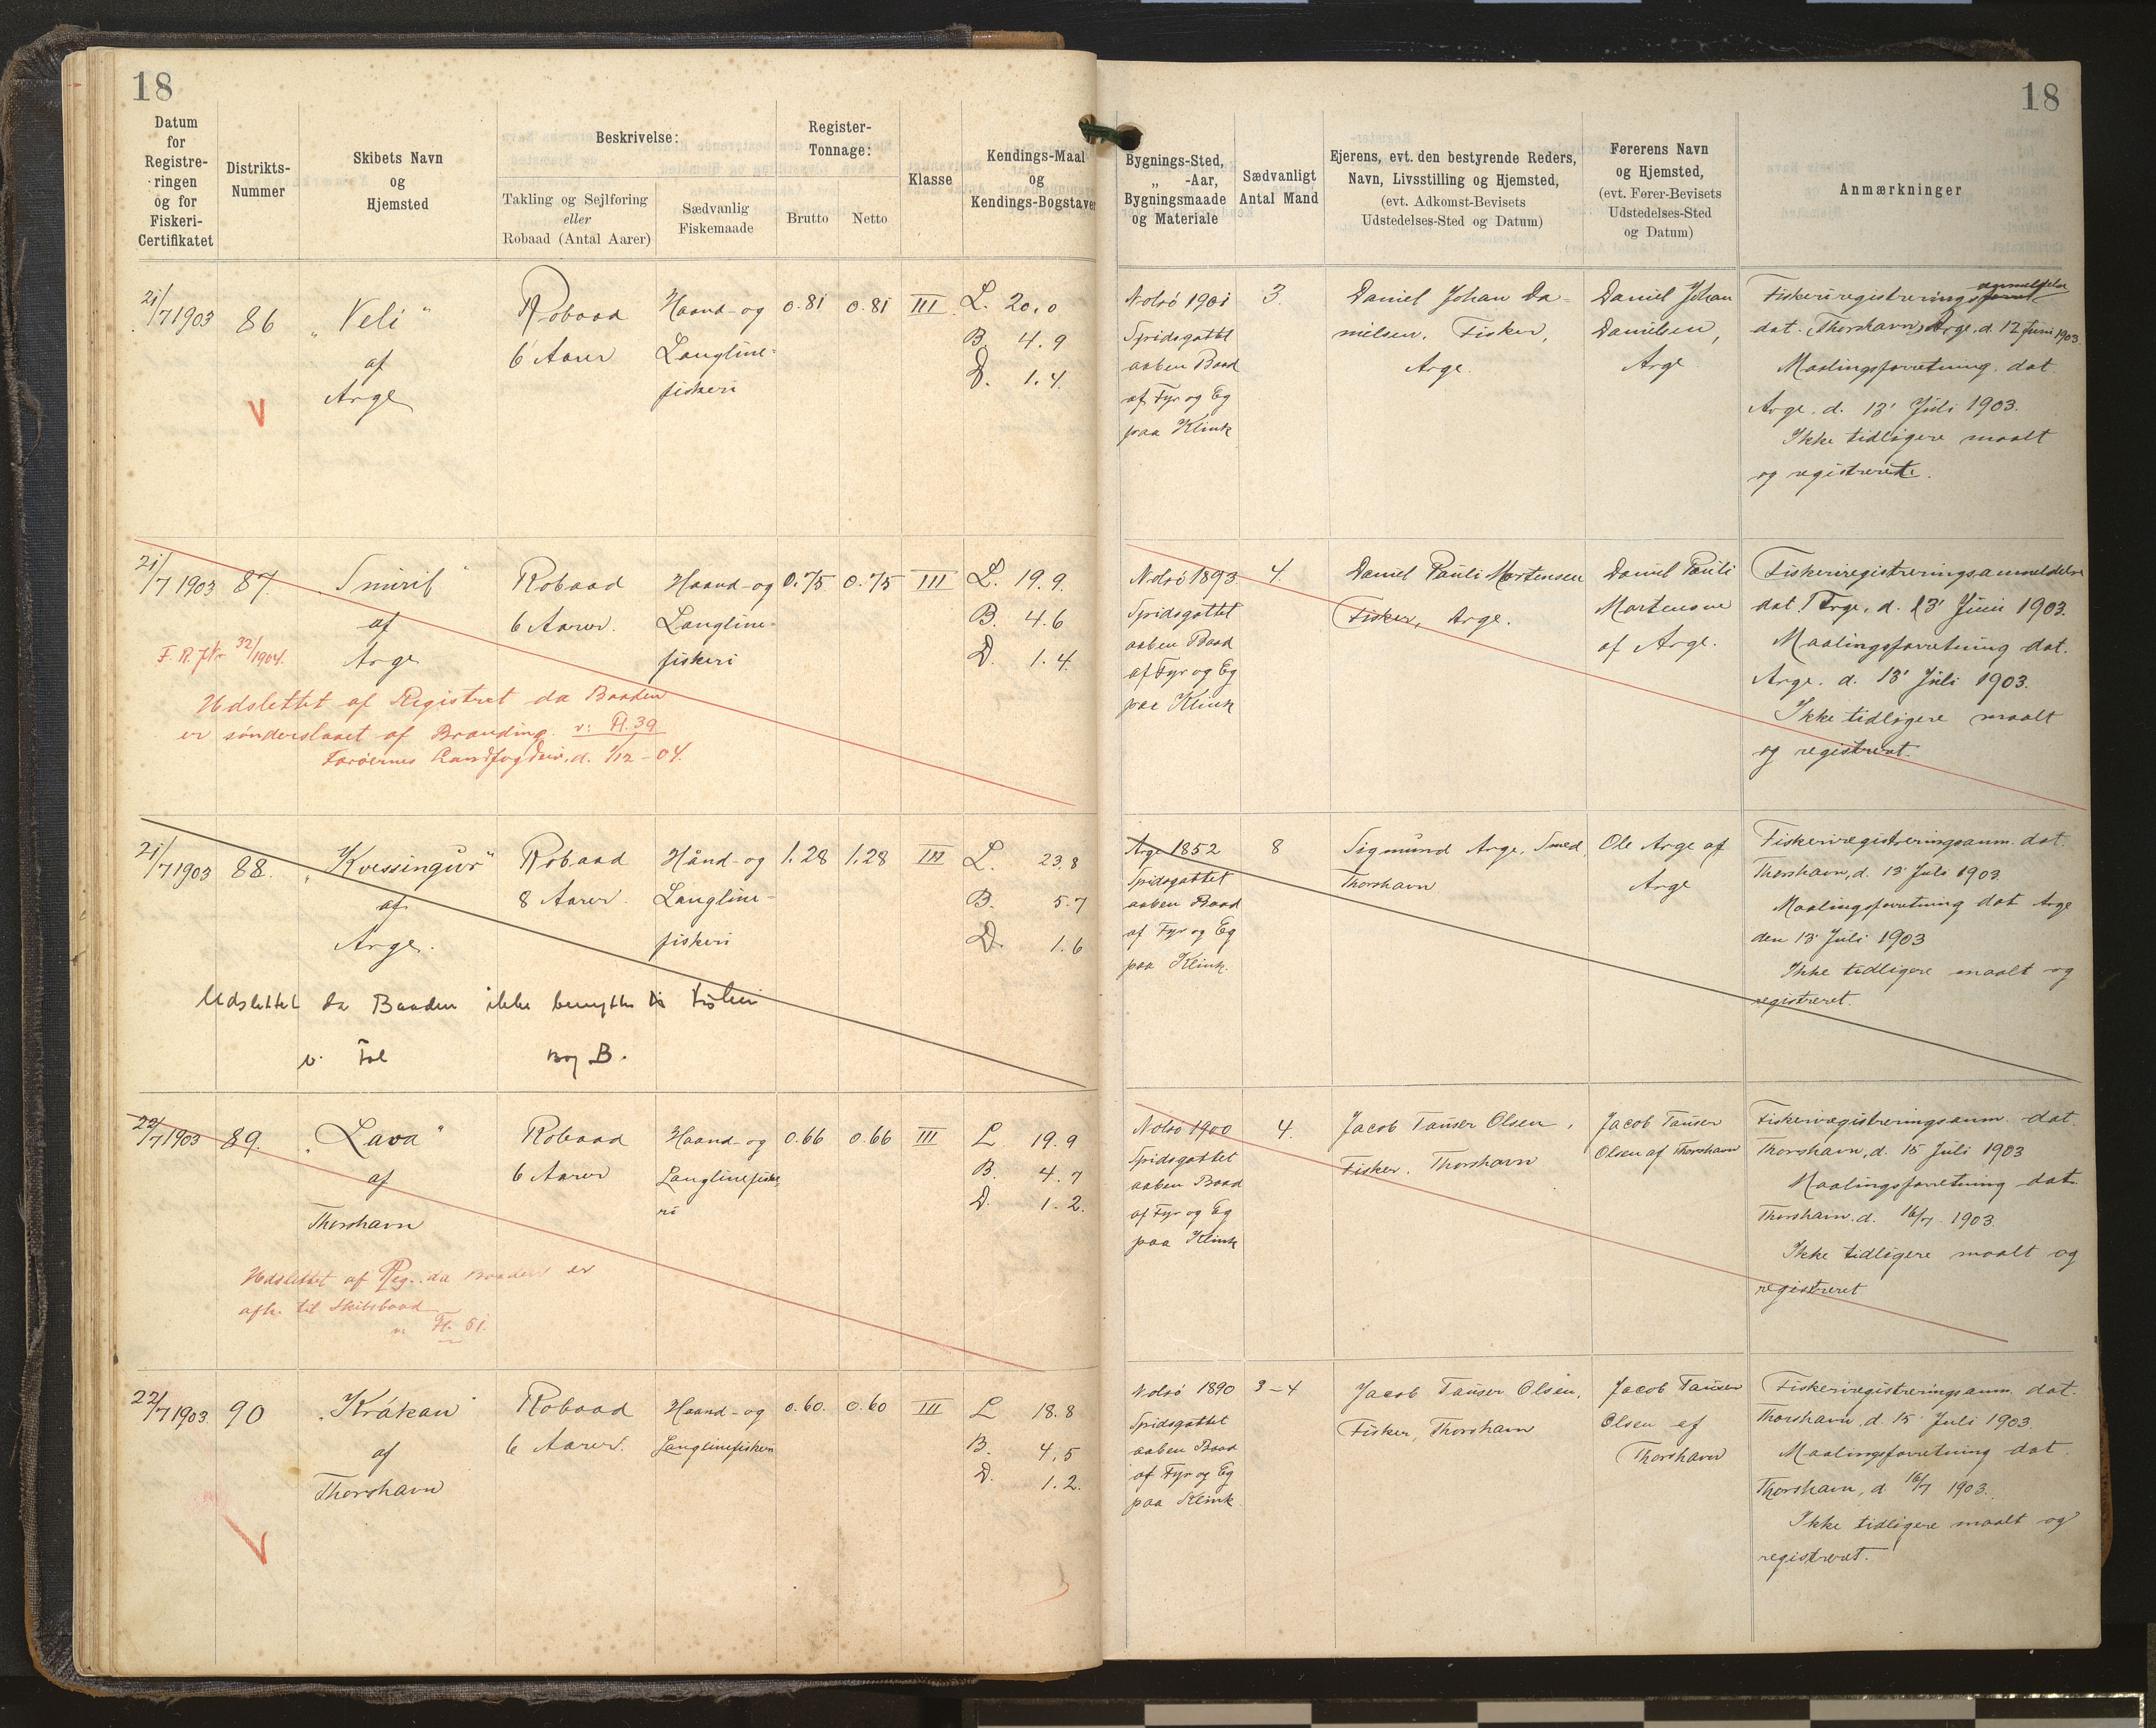 18
Datum
for
Registre-
ringen
og for
Fiskeri-
Certifikatet
Distrikts-
Nummer
Skibets Navn
og
Hjemsted
Beskrivelse:
Takling og Sejlføring
eller
Robaad (Antal Aarer)
Sædvanlig
Fiskemaade
Register-
Tonnage:
Brutto
Netto
Klasse
Kendings-Maal
og
Kendings-Bogstaver
18
Bygnings-Sted,
„ -Aar,
Bygningsmaade
og Materiale
Sædvanligt
Antal Mand
Ejerens, evt. den bestyrende Reders,
Navn, Livsstilling og Hjemsted,
(evt. Adkomst-Bevisets
Udstedelses-Sted og Datum)
Førerens Navn
og Hjemsted,
(evt. Fører-Bevisets
Udstedelses-Sted
og Datum)
Anmærkninger
21/7 1903
86
„Veli“
af
Arge
Robaad
6 Aarer
Haand- og
Langline-
fiskeri
0.81
0.81
III
L. 20.0
B. 4.9
D. 1.4
V
Nolsö 1901
Spidsgattet
aaben Baad
af Fyr og Eg
paa Klink
3.
Daniel Johan Da-
nielsen, Fisker,
Arge.
Daniel Johan
Danielsen,
Arge
Fiskeriregistreringsanmeldelse
dat. Thorshavn Arge, d. 12 Juni 1903.
Maalingsforretning dat.
Arge. d. 13' Juli 1903.
Ikke tidligere maalt
og registreret.
21/7 1903
87.
„Smiril“
af
Arge
Robaad
6 Aarer.
Haand- og
Langline-
fiskeri
0.75
0.75
III
L. 19.9.
B. 4.6
D. 1.4.
F. R. J Nr 32/1904.
Udslettet af Registret da Baaden
er sönderslaaet af Brænding. v: Fl. 39
Færöernes Landfogderi, d. 1/12 - 04.
Nolsö 1893.
Spidsgattet
aaben Baad
af Fyr og Eg
paa Klink
4.
Daniel Pauli Mortensen
Fisker, Arge.
Daniel Pauli
Mortensen
af Arge.
Fiskeriregistreringsanmeldelse
dat. Arge, d. 13' Juni 1903.
Maalingsforretning dat.
Arge. d. 13' Juli 1903.
Ikke tidligere maalt
og registreret.
21/7 1903
88.
„Kvessingur“
af
Arge.
Robaad
8 Aarer.
Hånd- og
Langline-
fiskeri
1.28
1.28
III
L. 23.8
B. 5.7
D. 1.6
Udslettet da Baaden ikke benyttes til Fiskeri
v. Fol Bog B.
Arge 1852
Spidsgattet
aaben Baad
af Fyr og Eg
paa Klink.
8
Sigmund Arge, Smed,
Thorshavn
Ole Arge af
Arge
Fiskeriregistreringsanm. dat.
Thorshavn, d. 13' Juli 1903.
Maalingsforretning dat Arge
den 13' Juli 1903
Ikke tidligere maalt og
registreret.
22/7 1903
89.
„Lava“
af
Thorshavn
Robaad
6 Aarer
Haand- og
Langlinefiske-
ri
0.66
0.66
III
L 19.9
B. 4.7
D. 1.2.
Udslettet af Reg. da Baaden er
afh. til Skibsbaad
v. Fl. 51.
Nolsö 1900
Spidsgattet
aaben Baad
af Fyr og Eg
paa Klink
4.
Jacob Tausen Olsen,
Fisker. Thorshavn
Jacob Tausen
Olsen af Thorshavn
Fiskeriregistreringsanm. dat.
Thorshavn, d. 15 Juli 1903
Maalingsforretning dat.
Thorshavn. d. 16/7 1903.
Ikke tidligere maalt og
registreret
22/7 1903.
90
„Krákan“
af
Thorshavn
Robaad
6 Aarer.
Haand- og
Langlinefiskeri
0.60.
0.60
III
L 18.8
B. 4,5
D. 1.2.
V
Nolsö 1890
Spidsgattet
aaben Baad
af Fyr og Eg
paa Klink.
3-4
Jacob Tausen Olsen,
Fisker, Thorshavn
Jacob Tausen
Olsen af
Thorshavn
Fiskeriregistreringsanm. dat.
Thorshavn, d. 15' Juli 1903.
Maalingsforretning dat.
Thorshavn, d. 16/7 1903.
Ikke tidligere maalt og
registreret.